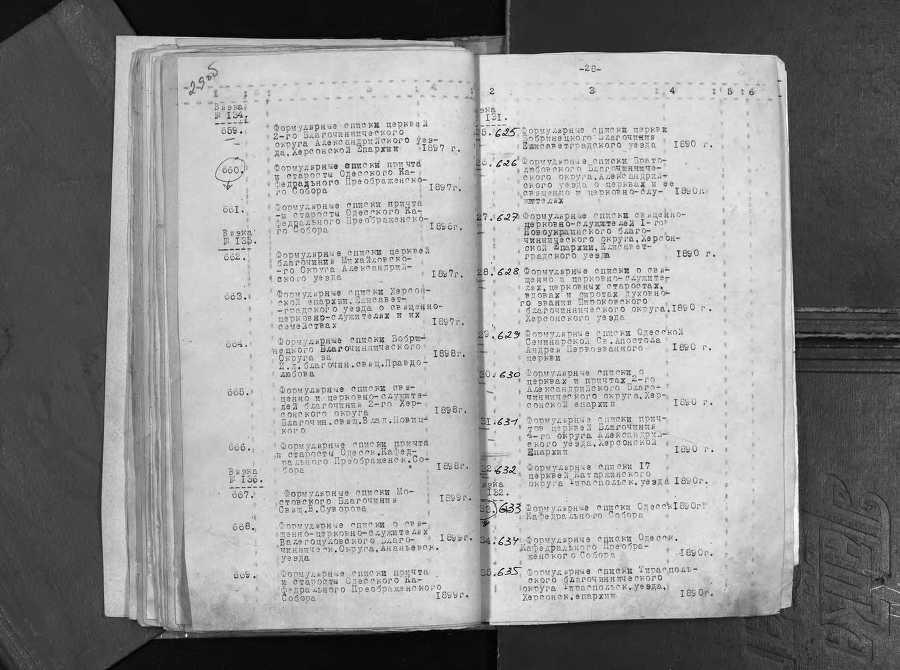 -2905
Вязка
№ 134.
659.
Формулярные списки церквей
2-го Благочиннического
округа Александрийского уез-
да, Херсонской Епархии 1897 г.
660.
Формулярные списки причта
и старосты Одесского Ка-
федрального Преображенско-
го Собора 1897г.
661.
Формулярные списки причта
-и старосты Одесского Ка-
федрального Преображенско-
го Собора 1896г.
Вязка
№ 135.
662.
Формулярные списки церквей
благочиния Михайловско-
-го Округа Александрий-
ского уезда 1897г.
663.
Формулярные списки Херсон-
ской епархии, Елисавет-
-градского уезда о священно-
церковно-служителях и их
семействах 1897г.
664.
Формулярные списки Бобри-
нецкого Благочиннического
Округа за 1898г.
И.Д.благочин.свящ.Правдо-
любова
665.
Формулярные списки свя-
щенно и церковно-служите-
лей благочиния 2-го Хер-
сонского округа 1898г.
Благочин.свящ.Влад.Новиц-
кого
666.
Формулярные списки причта
и старосты Одесск.Кафед-
рального Преображенск.Со-
бора 1898г.
Вязка
№ 136.
667.
Формулярные списки Мо-
стовского Благочиния 1899г.
Свящ.В.Суворова
668.
Формулярные списки о свя-
щенно-церковно-служителях
Валегоцуловского Благо- 1899г.
чинническ.Округа,Ананьевск.
уезда
669.
Формулярные списки причта
и старосты Одесского Ка-
федрального Преображенского
Собора 1899г.
-28-
2 3 4 5 6
131.
625
Формулярные списки церкви
Бобринецкого Благочиния
Елисаветградского уезда 1890 г.
626
Формулярные списки Брато-
любовского Благочинниче-
ского округа, Александрий-
ского уезда о церквах и ее 1890г.
священно и церковно-слу-
жителях
27. 627
Формулярные списки священно-
церковно-служителей 1-го
Новоукраинского благо-
чиннического округа, Херсон-
ской Епархии, Елисавет-
градского уезда 1890 г.
28. 628
Формулярные списки о свя-
щенно и церковно-служите-
лях, церковных старостах,
вдовах и сиротах духовно-
го звания Широковского
благочиннического округа, 1890 г.
Херсонского уезда
29. 629
Формулярные списки Одесской
Семинарской Св.Апостола
Андрея Первозванного 1890 г.
церкви
30. 630
Формулярные списки о
церквах и причтах 2-го
Александрийского Благо-
чиннического округа, Хер-
сонской епархии 1890 г.
31. 631
Формулярные списки прич-
тов церквей Благочиния
4-го округа Александрий-
ского уезда, Херсонской
Епархии 1890 г.
632
Формулярные списки 17
церквей Катаржинского
округа Тираспольск.уезда 1890г.
132.
633
Формулярные списки Одесск. 1890г.
Кафедрального Собора
34. 634
Формулярные списки Одесск.
Кафедрального Преобра-
женского Собора 1890г.
635
Формулярные списки Тирасполь-
ского благочиннического
округа Тираспольск.уезда,
Херсонск.епархии 1890г.